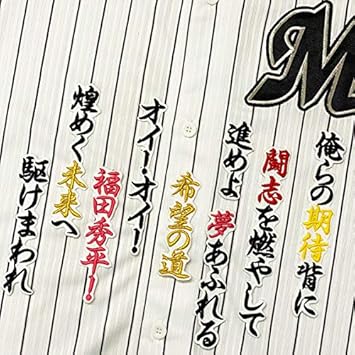 M
俺らの期待背に
闘志を燃やして
進めよ夢あふれる
希望の道
オイー・オイー!
福田秀平!
煌めく未来へ
駆けまわれ